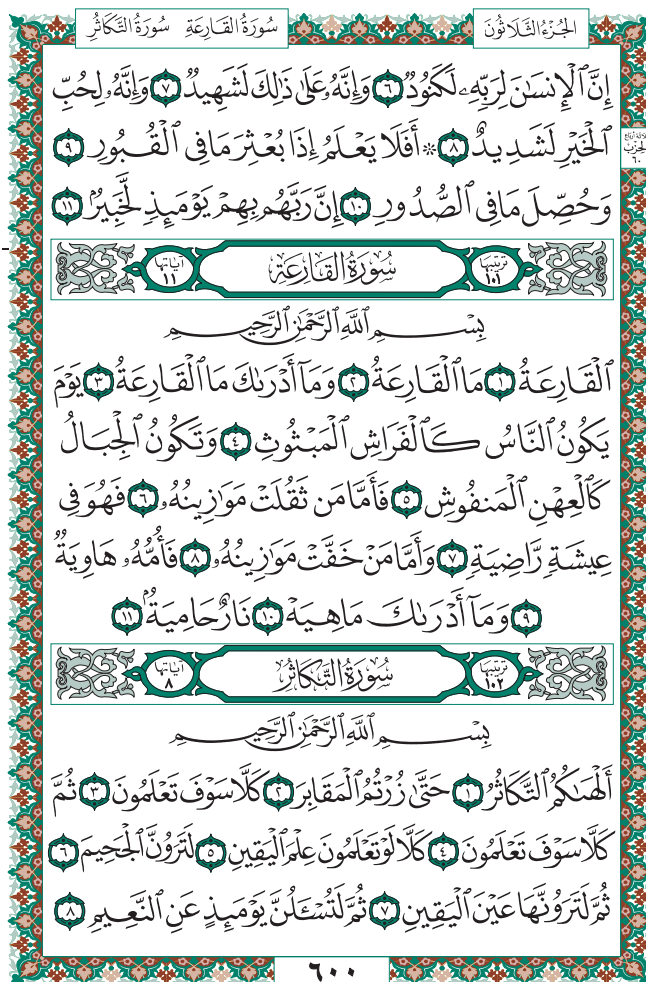 سُورَةُ القَارِعَةِ سُورَةُ التَّكَاثُرِ
الجُزْءُ الثَّلَاثُونَ
إِنَّ ٱلْإِنسَـٰنَ لِرَبِّهِۦ لَكَنُودٌ ٦ وَإِنَّهُۥ عَلَىٰ ذَٰلِكَ لَشَهِيدٌ ٧ وَإِنَّهُۥ لِحُبِّ
ٱلْخَيْرِ لَشَدِيدٌ ٨ ۞ أَفَلَا يَعْلَمُ إِذَا بُعْثِرَ مَا فِى ٱلْقُبُورِ ٩
وَحُصِّلَ مَا فِى ٱلصُّدُورِ ١٠ إِنَّ رَبَّهُم بِهِمْ يَوْمَئِذٍ لَّخَبِيرٌۢ ١١
ترتيبها ١٠١ سُورَةُ القَارِعَةِ آياتها ١١
بِسْمِ ٱللَّهِ ٱلرَّحْمَـٰنِ ٱلرَّحِيمِ
ٱلْقَارِعَةُ ١ مَا ٱلْقَارِعَةُ ٢ وَمَآ أَدْرَىٰكَ مَا ٱلْقَارِعَةُ ٣ يَوْمَ
يَكُونُ ٱلنَّاسُ كَٱلْفَرَاشِ ٱلْمَبْثُوثِ ٤ وَتَكُونُ ٱلْجِبَالُ
كَٱلْعِهْنِ ٱلْمَنفُوشِ ٥ فَأَمَّا مَن ثَقُلَتْ مَوَٰزِينُهُۥ ٦ فَهُوَ فِى
عِيشَةٍ رَّاضِيَةٍ ٧ وَأَمَّا مَنْ خَفَّتْ مَوَٰزِينُهُۥ ٨ فَأُمُّهُۥ هَاوِيَةٌ
٩ وَمَآ أَدْرَىٰكَ مَا هِيَهْ ١٠ نَارٌ حَامِيَةٌۢ ١١
ترتيبها ١٠٢ سُورَةُ التَّكَاثُرِ آياتها ٨
بِسْمِ ٱللَّهِ ٱلرَّحْمَـٰنِ ٱلرَّحِيمِ
أَلْهَىٰكُمُ ٱلتَّكَاثُرُ ١ حَتَّىٰ زُرْتُمُ ٱلْمَقَابِرَ ٢ كَلَّا سَوْفَ تَعْلَمُونَ ٣ ثُمَّ
كَلَّا سَوْفَ تَعْلَمُونَ ٤ كَلَّا لَوْ تَعْلَمُونَ عِلْمَ ٱلْيَقِينِ ٥ لَتَرَوُنَّ ٱلْجَحِيمَ ٦
ثُمَّ لَتَرَوُنَّهَا عَيْنَ ٱلْيَقِينِ ٧ ثُمَّ لَتُسْـَٔلُنَّ يَوْمَئِذٍ عَنِ ٱلنَّعِيمِ ٨
٦٠٠